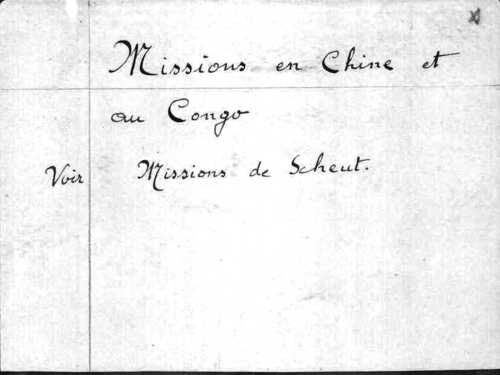 Missions en Chine et
au Congo
Voir Missions de Scheut.